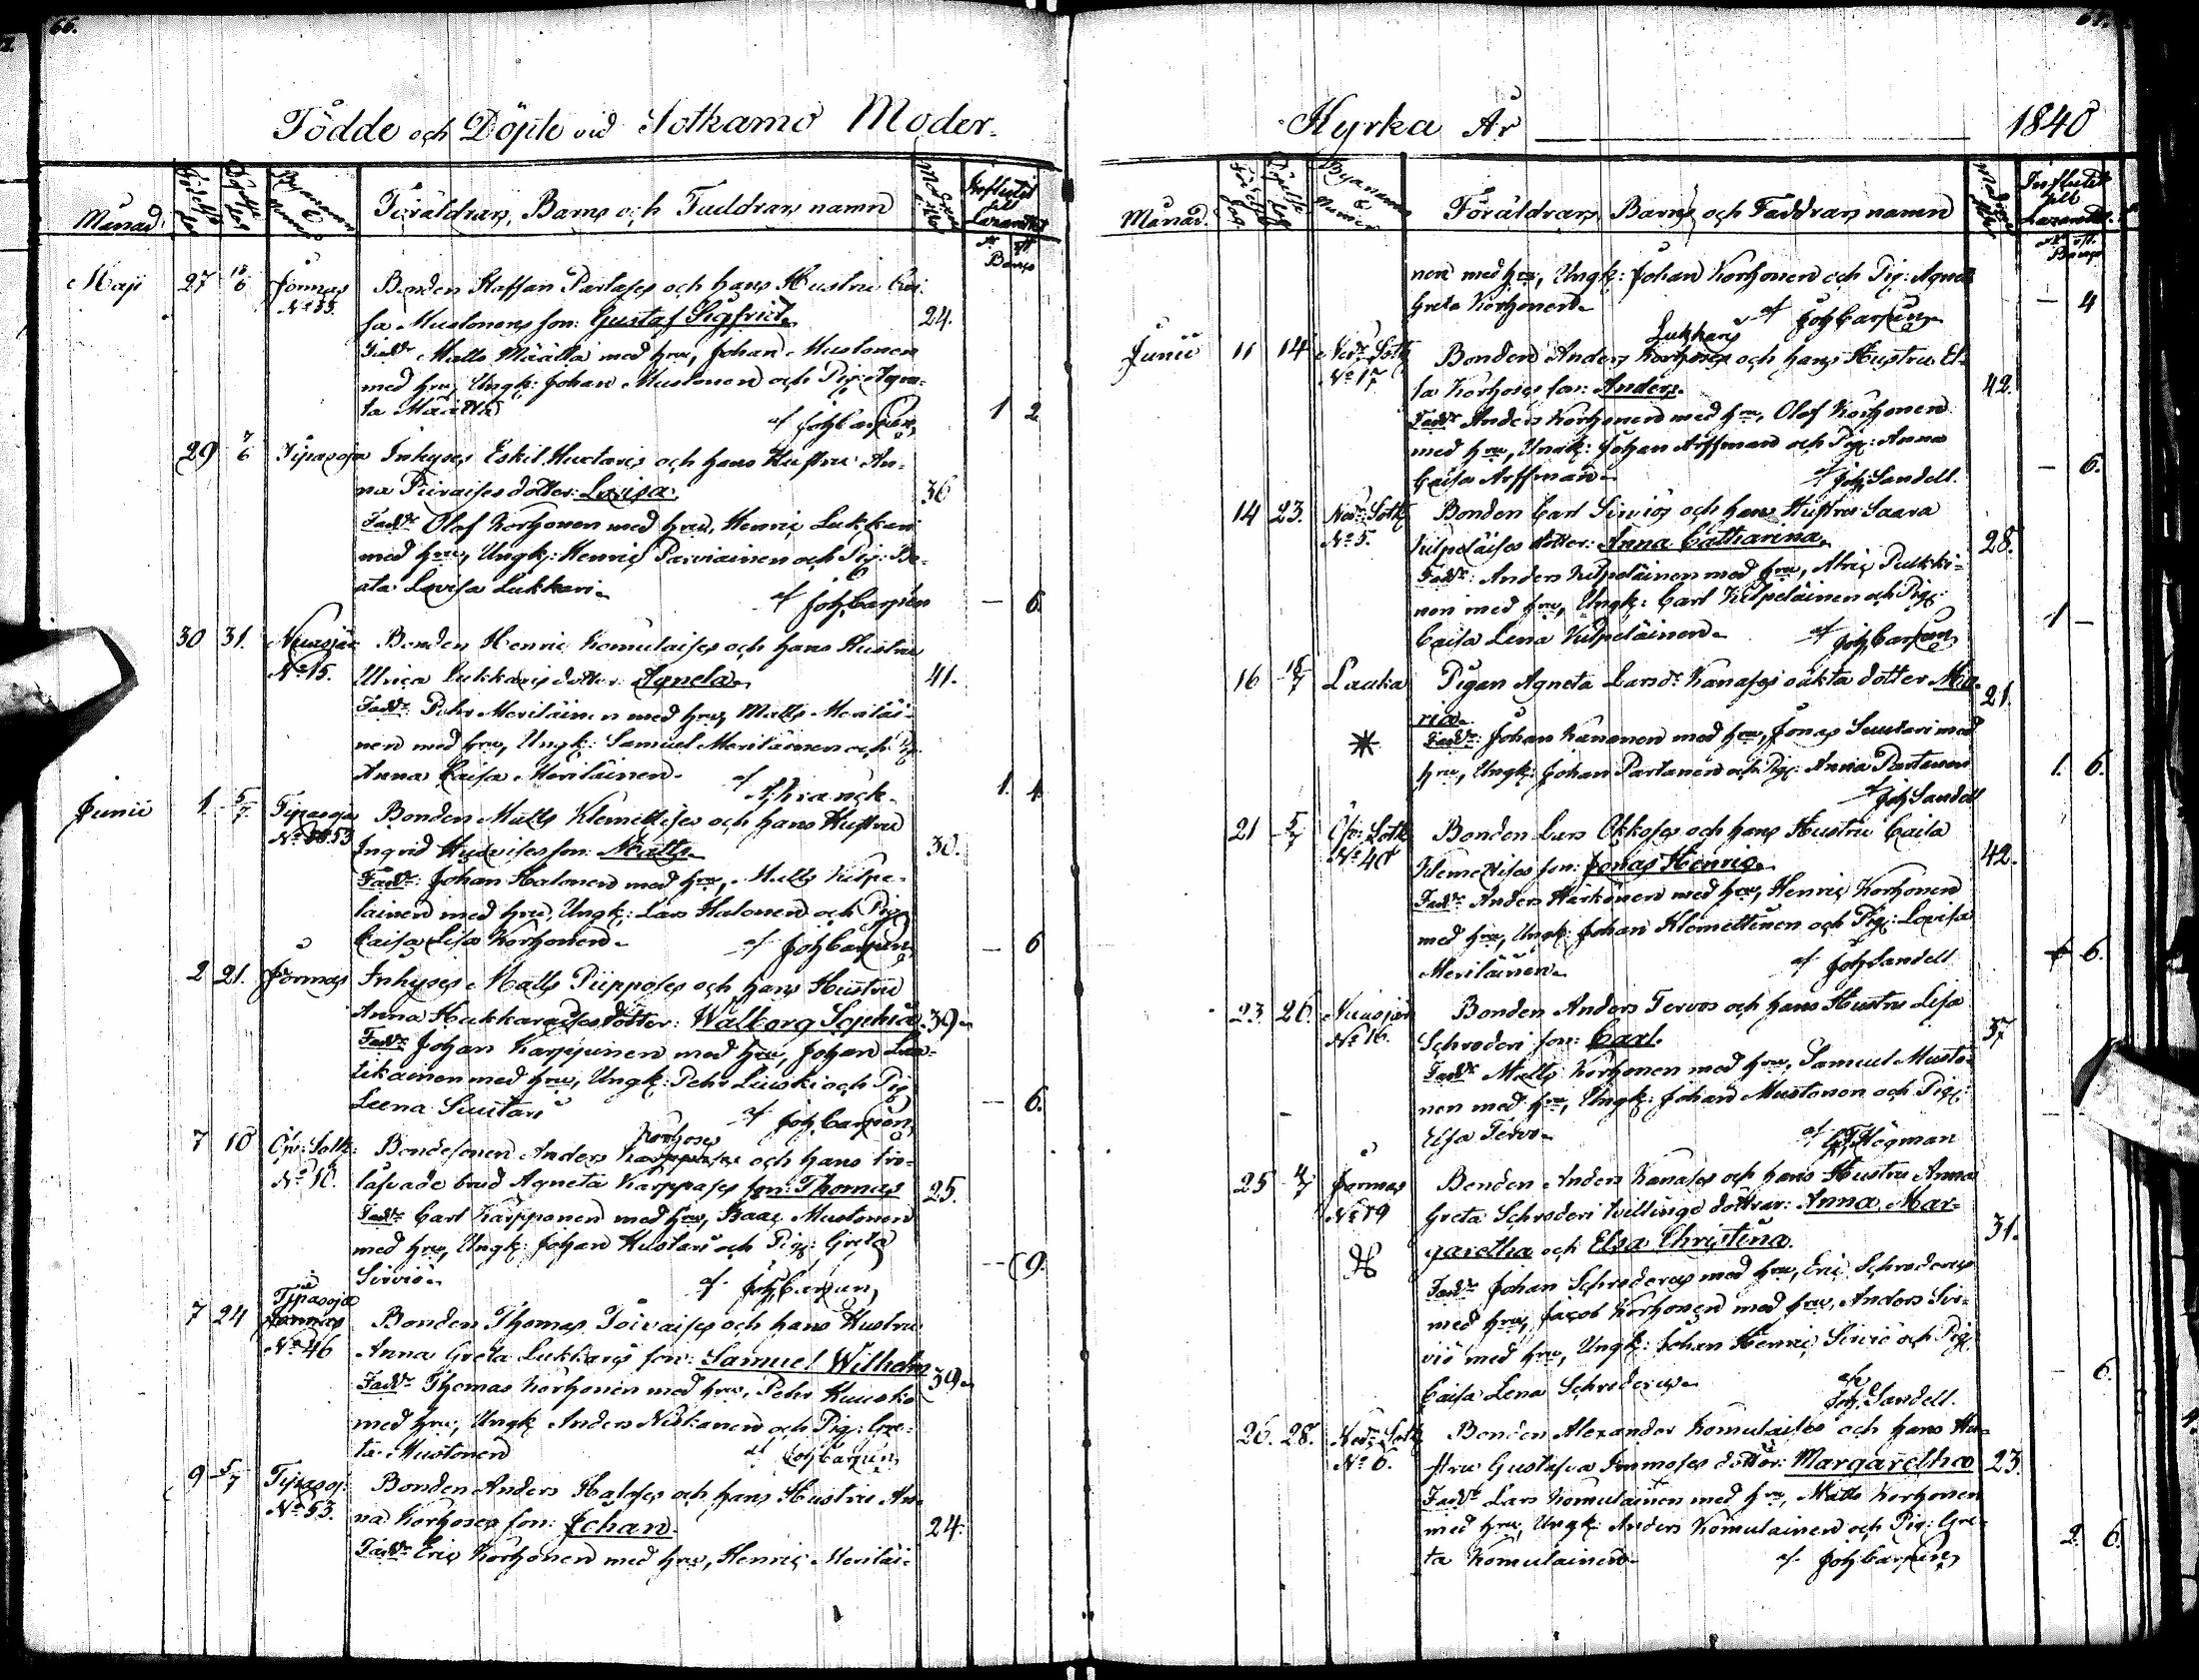 66.
67.
Födde och Döpte vid Sotkamo Moder-
Kyrka År 1840
Månad. Födelse dag Döpelse dag Byanamn & Numer Föräldrars, Barns och Faddrars namn Modrens ålder Influtit till Lazarettet
Banco
Maji 27 18/6 Jormas Bonden Staffan Partases och hans Hustru Cai-
No 55. sa Mustonens son: Gustaf Sigfrid. 24.
Faddr Matts Määttä med hru, Johan Mustonen
med hru, Ungk: Johan Mustonen och Pig: Agne-
ta Määttä af Joh Carpén 1 2
29 7/6 Tipasoja Inhyses Eskil Huotaris och hans Hustru An-
na Piiraises dotter: Lovisa. 36
Faddr Olof Korhonen med hru, Henric Lukkari
med hru, Ungk: Henric Parviainen och Pig: Be-
ata Lovisa Lukkari. af Joh Carpén — 6.
30 31. Nuasjär Bonden Henric Komulaises och hans Hustru
No 15. Ulrica Lukkaris dotter: Agneta. 41.
Faddr: Pehr Meriläinen med hru, Matts Meriläi-
nen med hru, Ungk: Samuel Meriläinen och Pig:
Anna Caisa Meriläinen. af A. Franck. 1. 4
Junii 1 5/7 Tipasoja Bonden Matts Klemettises och hans Hustru
No 53 Ingrid son: Matts. 30.
Faddr: Johan Halonen med hru, Matts Kilpe-
läinen med hru, Ungk: Lars Halonen och Pig:
Caisa Lisa Korhonen. af Joh Carpén — 6
2 21. Jormas Inhyses Matts Piipposes och hans Hustru
Anna Hukkaraises dotter: Walborg Sophia. 39.
Faddr Johan Karppinen med hru, Johan Laa-
tikainen med hru, Ungk: Pehr Liuski och Pig
Leena Suutari af Joh Carpén — 6.
Korhoses
7 10 Öfr: Sotk: Bondesonen Anders och hans tro-
No 10. låfvade brud Agneta Karppases son: Thomas 25.
Faddr Carl Karpponen med hru, Isaac Mustonen
med hru, Ungk: Johan Huotari och Pig: Greta
Sirviö. af Joh Carpén — 9.
Tipasoja
7 24 Jormas Bonden Thomas Toivaises och hans Hustru
No 46 Anna Greta Lukkaris son: Samuel Wilhelm 39.
Faddr Thomas Korhonen med hru, Pehr Kuusko
med hru, Ungk Anders Niskanen och Pig: Gre-
ta Mustonen af Joh Carpén
9 5/7 Tipasoj: Bonden Anders Haloses och hans Hustru An-
No 53. na Korhoses son: Johan. 24.
Faddr Eric Korhonen med hru, Henric Meriläi-
Månad. Födelse dag Döpelse dag Byanamn & Numer Föräldrars, Barns och Faddrars namn Modrens ålder Influtit till Lazarettet.
Banco
nen med hru, Ungk: Johan Korhonen och Pig: Agneta
Greta Korhonen. af Joh Carpén — 4
Lukkaris
Junii 11 14 Nedr: Sotk Bonden Anders Korhoses och hans Hustru El-
No 17 sa Korhoses son: Anders. 42.
Faddr Anders Korhonen med hru, Olof Korhonen
med hru, Ungk: Johan Arffman och Pig: Anna
Caisa Arffman. af Joh Sandell. — 6.
14 23. Nedr Sotk Bonden Carl Sirviös och hans Hustru Saara
No 5. Kilpeläises dotter: Anna Catharina. 28.
Faddr: Anders Kilpeläinen med hru, Alric Pulkki-
nen med hru, Ungk: Carl Kilpeläinen och Pig:
Caisa Lena Kilpeläinen. af Joh Carpén 1 —
16 18/7 Laaka Pigan Agneta Larsdr Kanases oäkta dotter Ma- 21.
ria.
Faddr: Johan Kananen med hru, Jonas Suutari med
hru, Ungk: Johan Partanen och Pig: Anna Partanen 1. 6.
af Joh Sandell
21 5/7 Öfr: Sotk Bonden Lars Okkoses och hans Hustru Caisa
No 40 Klemettises son: Jonas Henric. 42.
Faddr Anders Härkönen med hru, Henric Korhonen
med hru, Ungk: Johan Klemettinen och Pig: Lovisa
Meriläinen. af Joh Sandell 6.
23 26. Nuasjär Bonden Anders Tervos och hans Hustru Lisa
No 16. Schroderi son: Carl. 37
Faddr Matts Korhonen med hru, Samuel Musto-
nen med hru, Ungk: Johan Mustonen och Pig:
Elsa Tervo. af Högman
25 4/7 Jormas Bonden Anders Kanases och hans Hustru Anna
No 19 Greta Schroderi tvillinge döttrar: Anna Mar-
garetha och Elsa Christina. 31.
Faddr Johan Schroderus med hru, Eric Schroderus
med hru, Jacob Korhonen med hru, Anders Sir-
viö med hru, Ungk: Johan Henric Sirviö och Pig
Caisa Lena Schroderus. af Joh Sandell. — 6.
26. 28. Nedr: Sotk Bonden Alexander Komulaises och hans Hu-
No 6. stru Gustafva Immoses dotter: Margaretha 23.
Faddr Lars Komulainen med hru, Matts Korhonen
med hru, Ungk: Anders Komulainen och Pig: Gre-
ta Komulainen. af Joh Carpén 2. 6.